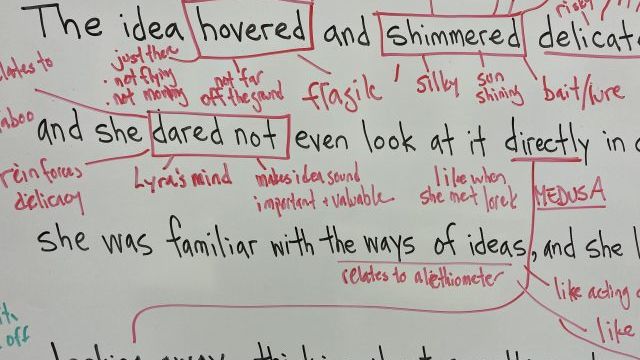 risky
The idea hovered and shimmered delicat
just then
relates to
. not flying
. not moving
not far
off the ground
fragile
silky
sun
shining
bait/lure
taboo
and she dared not even look at it directly in
reinforces
delicacy
Lyra's mind
makes idea sound
important + valuable
like when
she met Iorek
MEDUSA
she was familiar with the ways of ideas, and she
relates to alethiometer
like acting
like
off